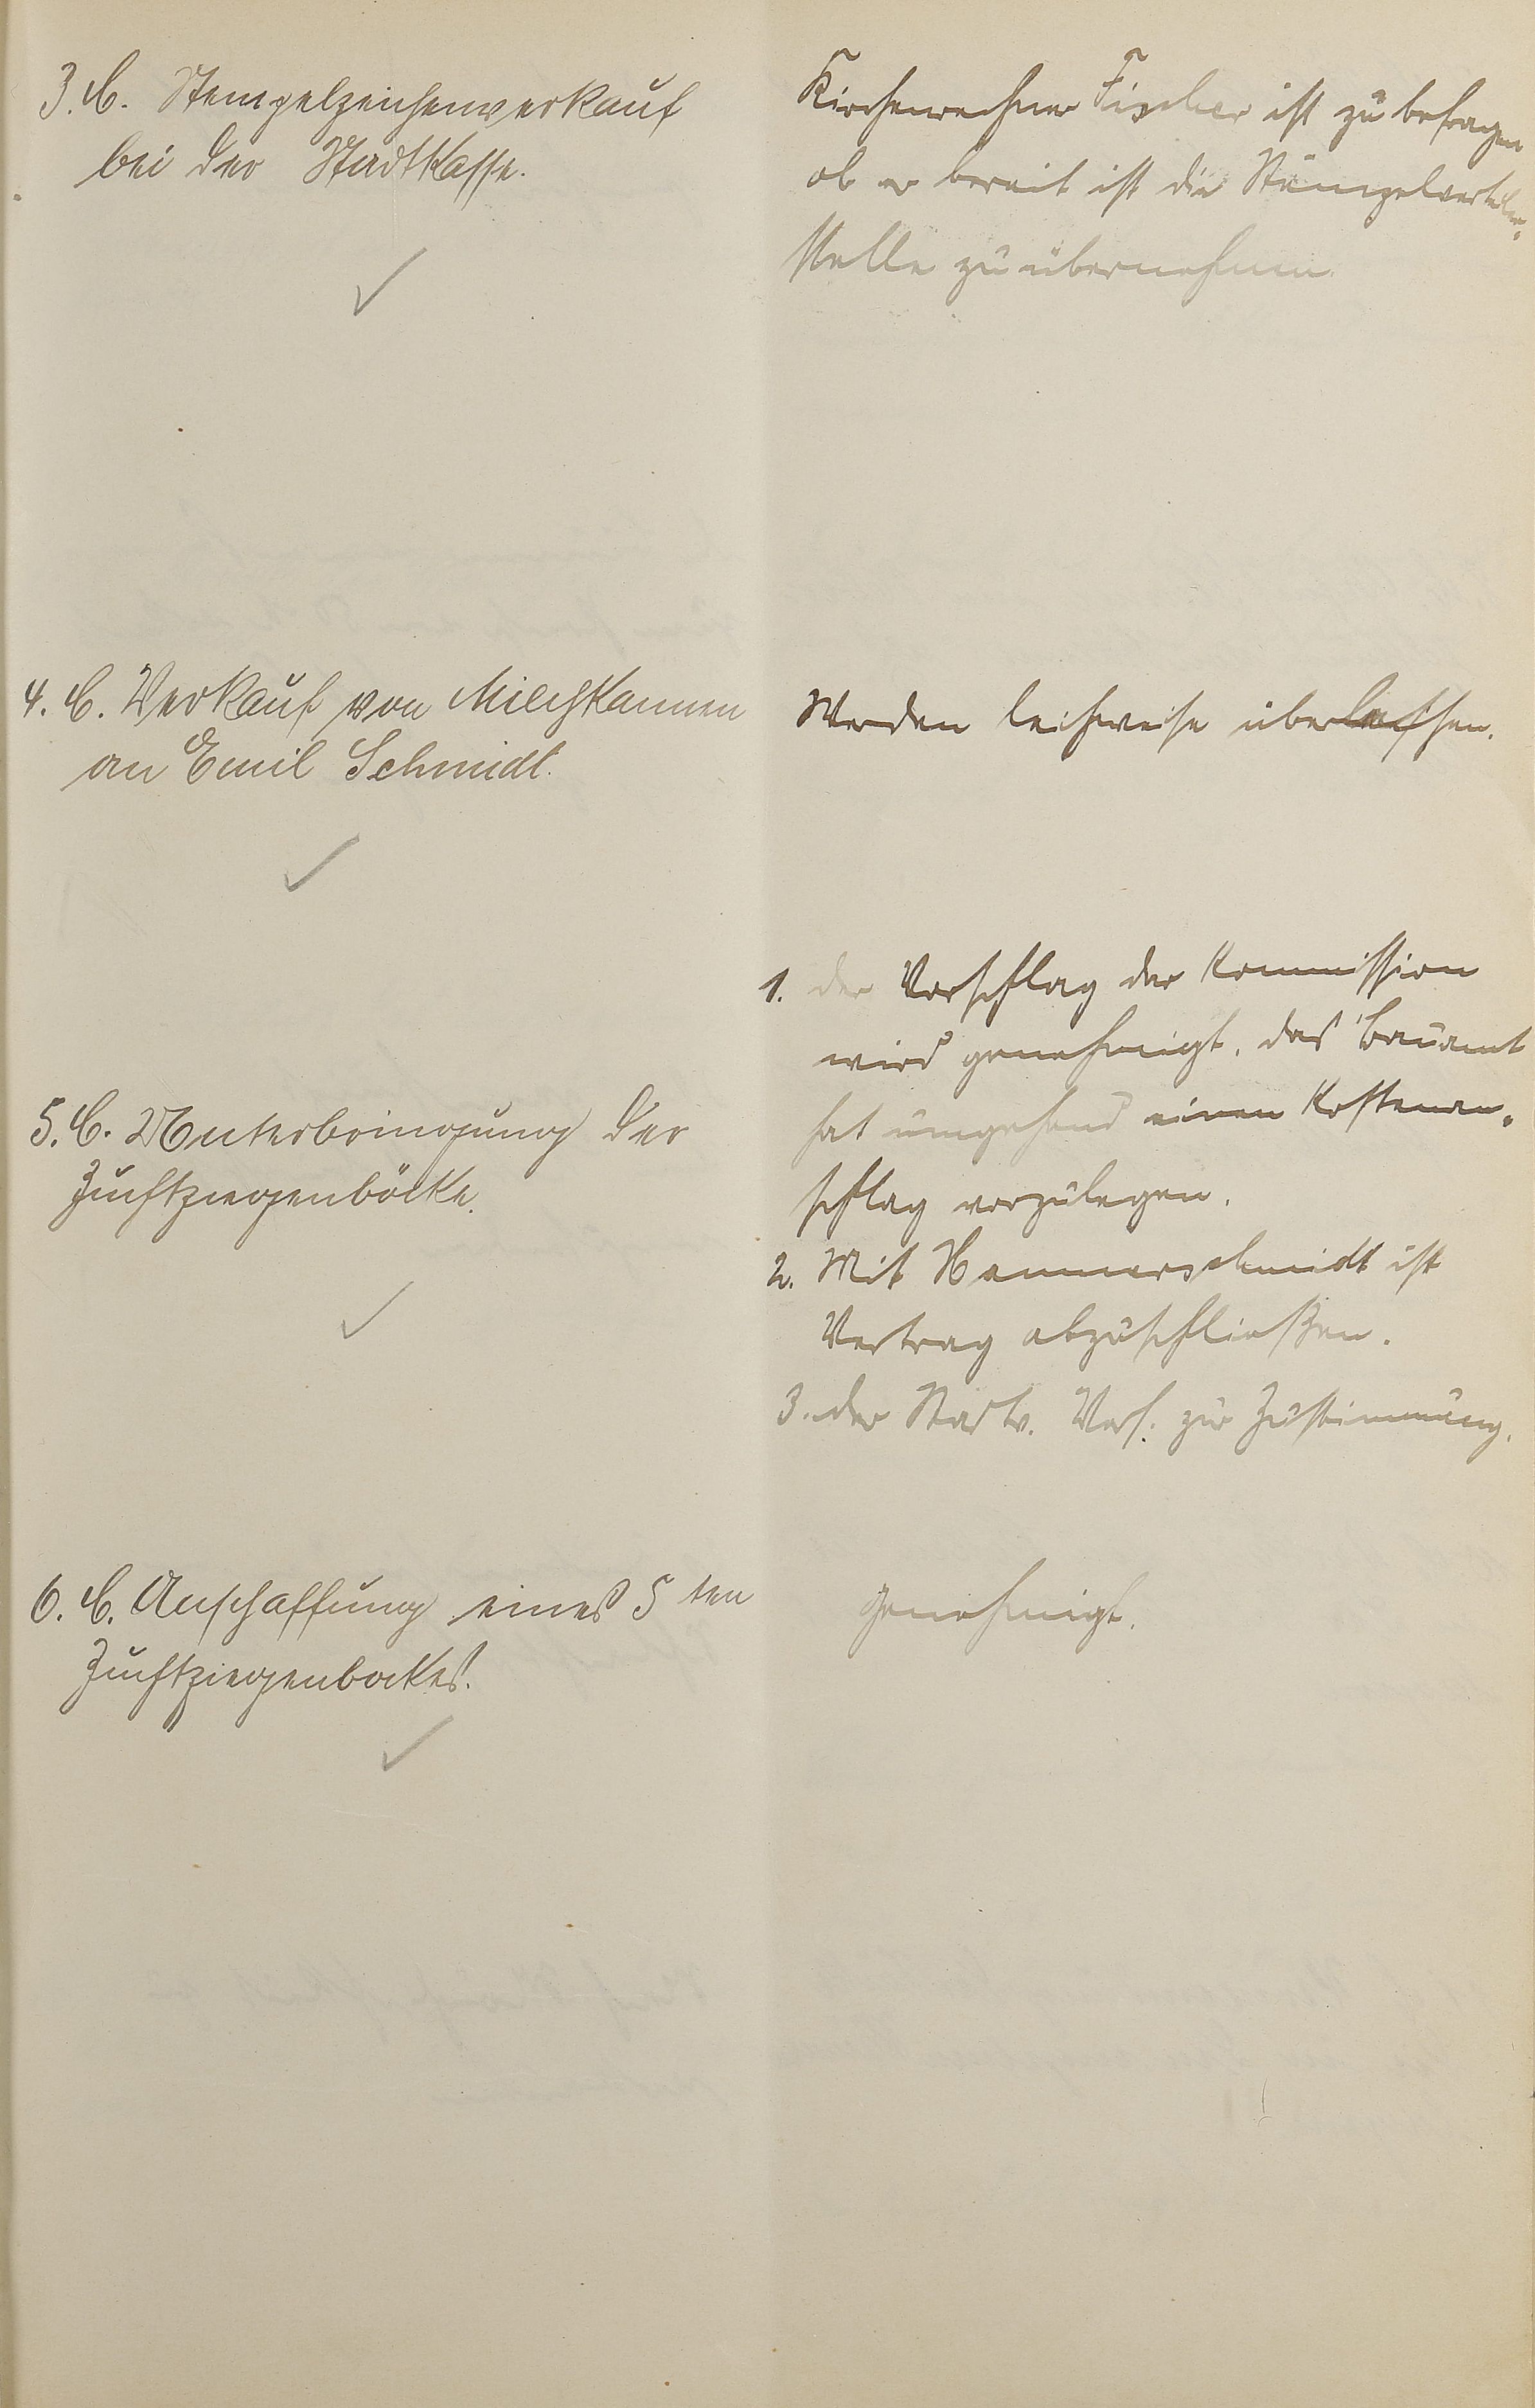 3. C. Stempelzeichenverkauf
bei der Stadtkasse.
Kirchenrechner Fischer ist zu befragen
ob er bereit ist die Stempelverteiler-
stelle zu übernehmen.
4. C. Verkauf von Milchkannen
an Emil Schmidt.
Werden leihweise überlassen.
5. C. Unterbringung der
Zuchtziegenböcke.
1. der Vorschlag der Kommission
wird genehmigt, das Bauamt
hat umgehend einen Kostenan-
schlag vorzulegen.
2. Mit Hammerschmidt ist
Vertrag abzuschließen.
3. der Stadtv. Vers. zur Zustimmung.
6. C. Anschaffung eines 5ten
Zuchtziegenbockes.
Genehmigt.